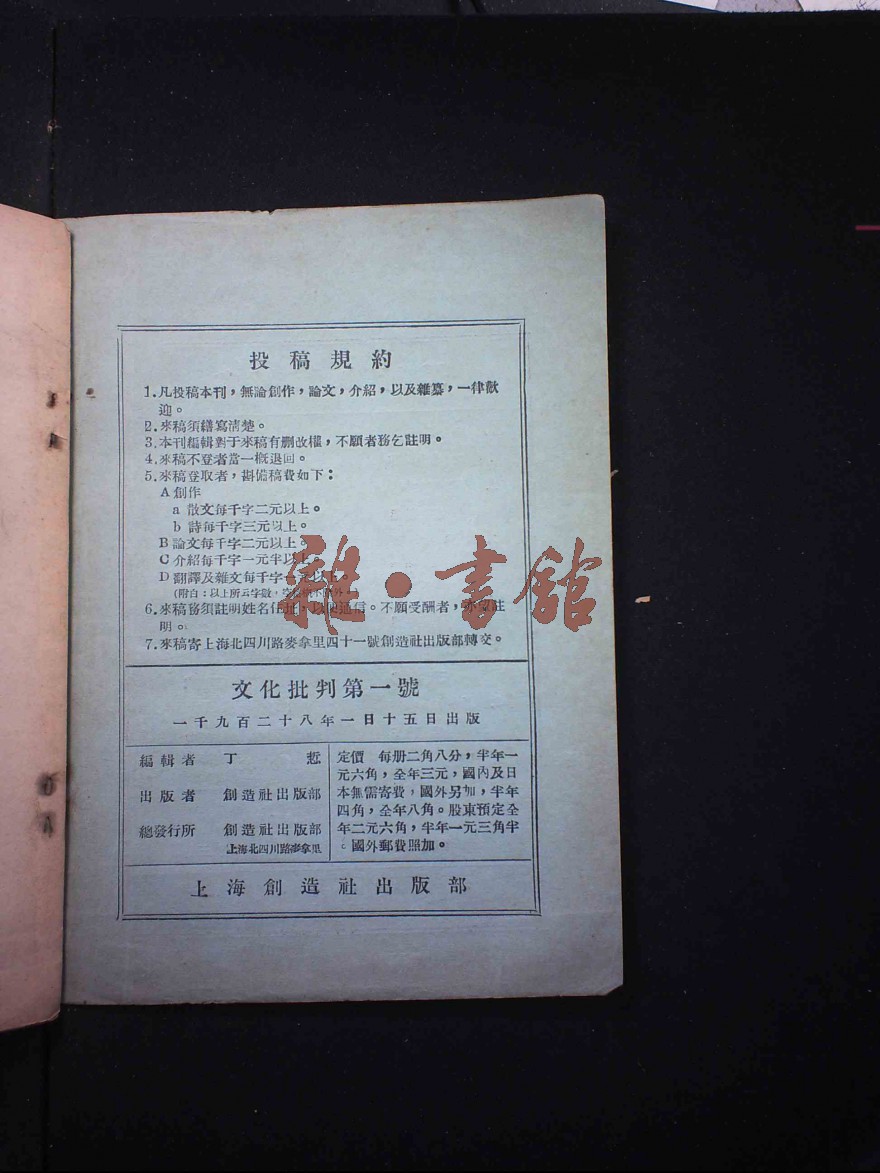 投稿規約
1.凡投稿本刊，無論創作，論文，介紹，以及雜纂，一律歡
迎。
2.來稿須繕寫清楚。
3.本刊編輯對于來稿有删改權，不願者務乞註明。
4.來稿不登者當一概退回。
5.來稿登取者，斟備稿費如下：
A 創作
a 散文每千字二元以上。
b 詩每千字三元以上。
B 論文每千字二元以上。
C 介紹每千字一元半以上。
D 翻譯及雜文每千字一元以上。
(附白：以上所云字數，空格
6.來稿務須註明姓名住址，以便通信。不願受酬者，亦望註
明。
7.來稿寄上海北四川路麥拿里四十一號創造社出版部轉交。
雜•書館
文化批判第一號
一千九百二十八年一日十五日出版
編輯者 丁悊
出版者 創造社出版部
總發行所 創造社出版部
上海北四川路麥拿里
定價 每册二角八分，半年一
元六角，全年三元，國內及日
本無需寄費，國外另加，半年
四角，全年八角。股東預定全
年二元六角，半年一元三角半
。國外郵費照加。
上海創造社出版部